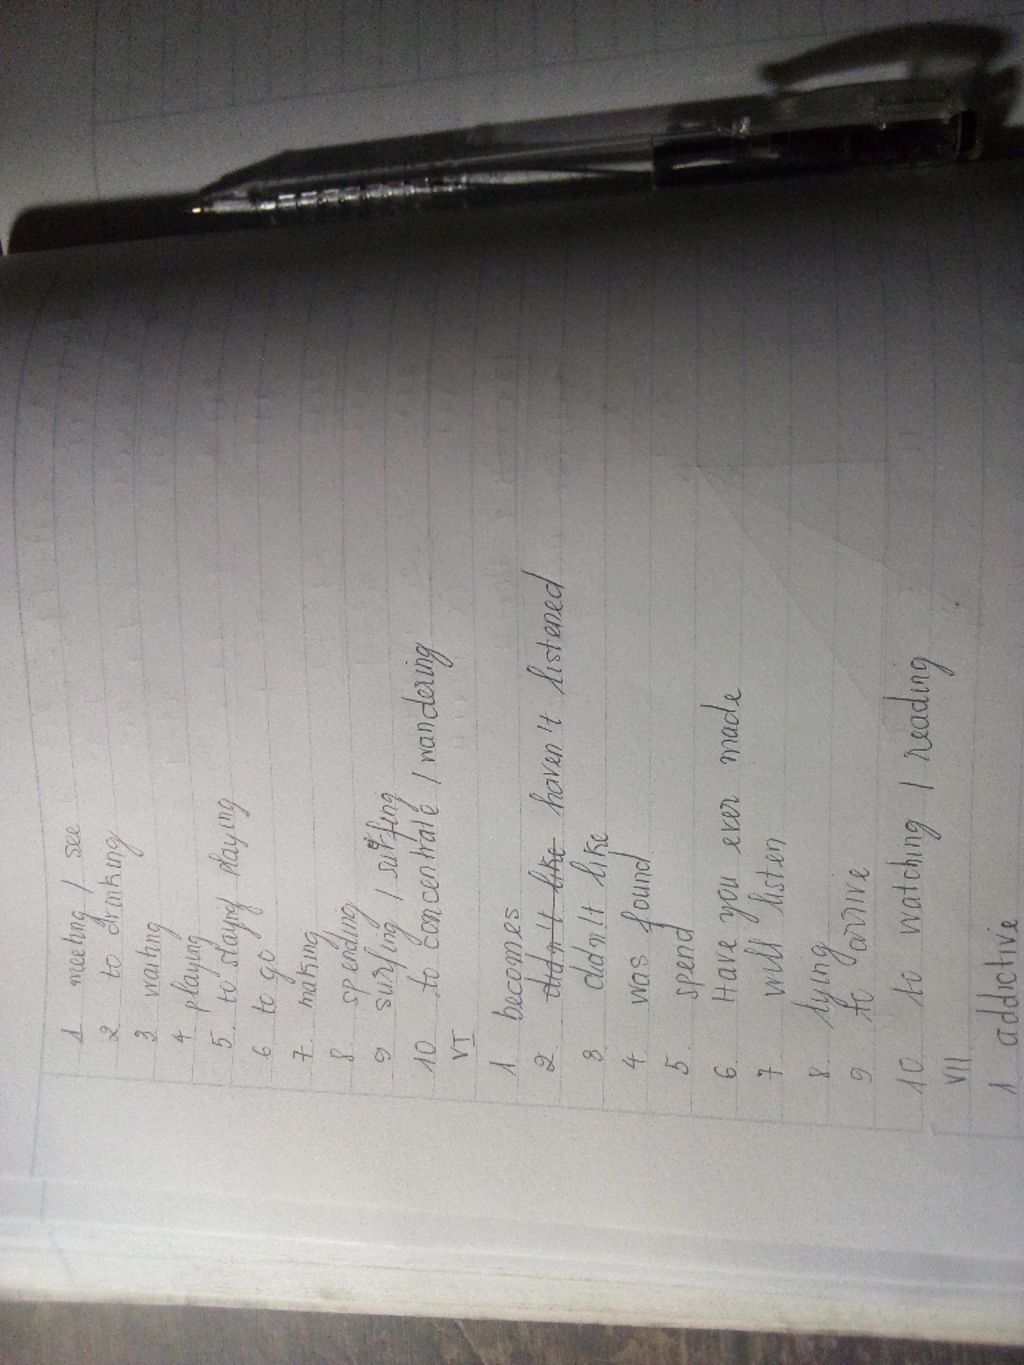 1 meeting / see
2 to drinking
3 waiting
4 playing
5. to playing
6 to go
7. making
8. spending
9 surfing / surfing
10. to concentrate / wandering
VI
1 becomes
2 didn't like haven't listened
3 didn't like
4 was found
5 spend
6 Have you ever made
7 will listen
8 lying
9. to arrive
10 to watching / reading
VII
1 addictive